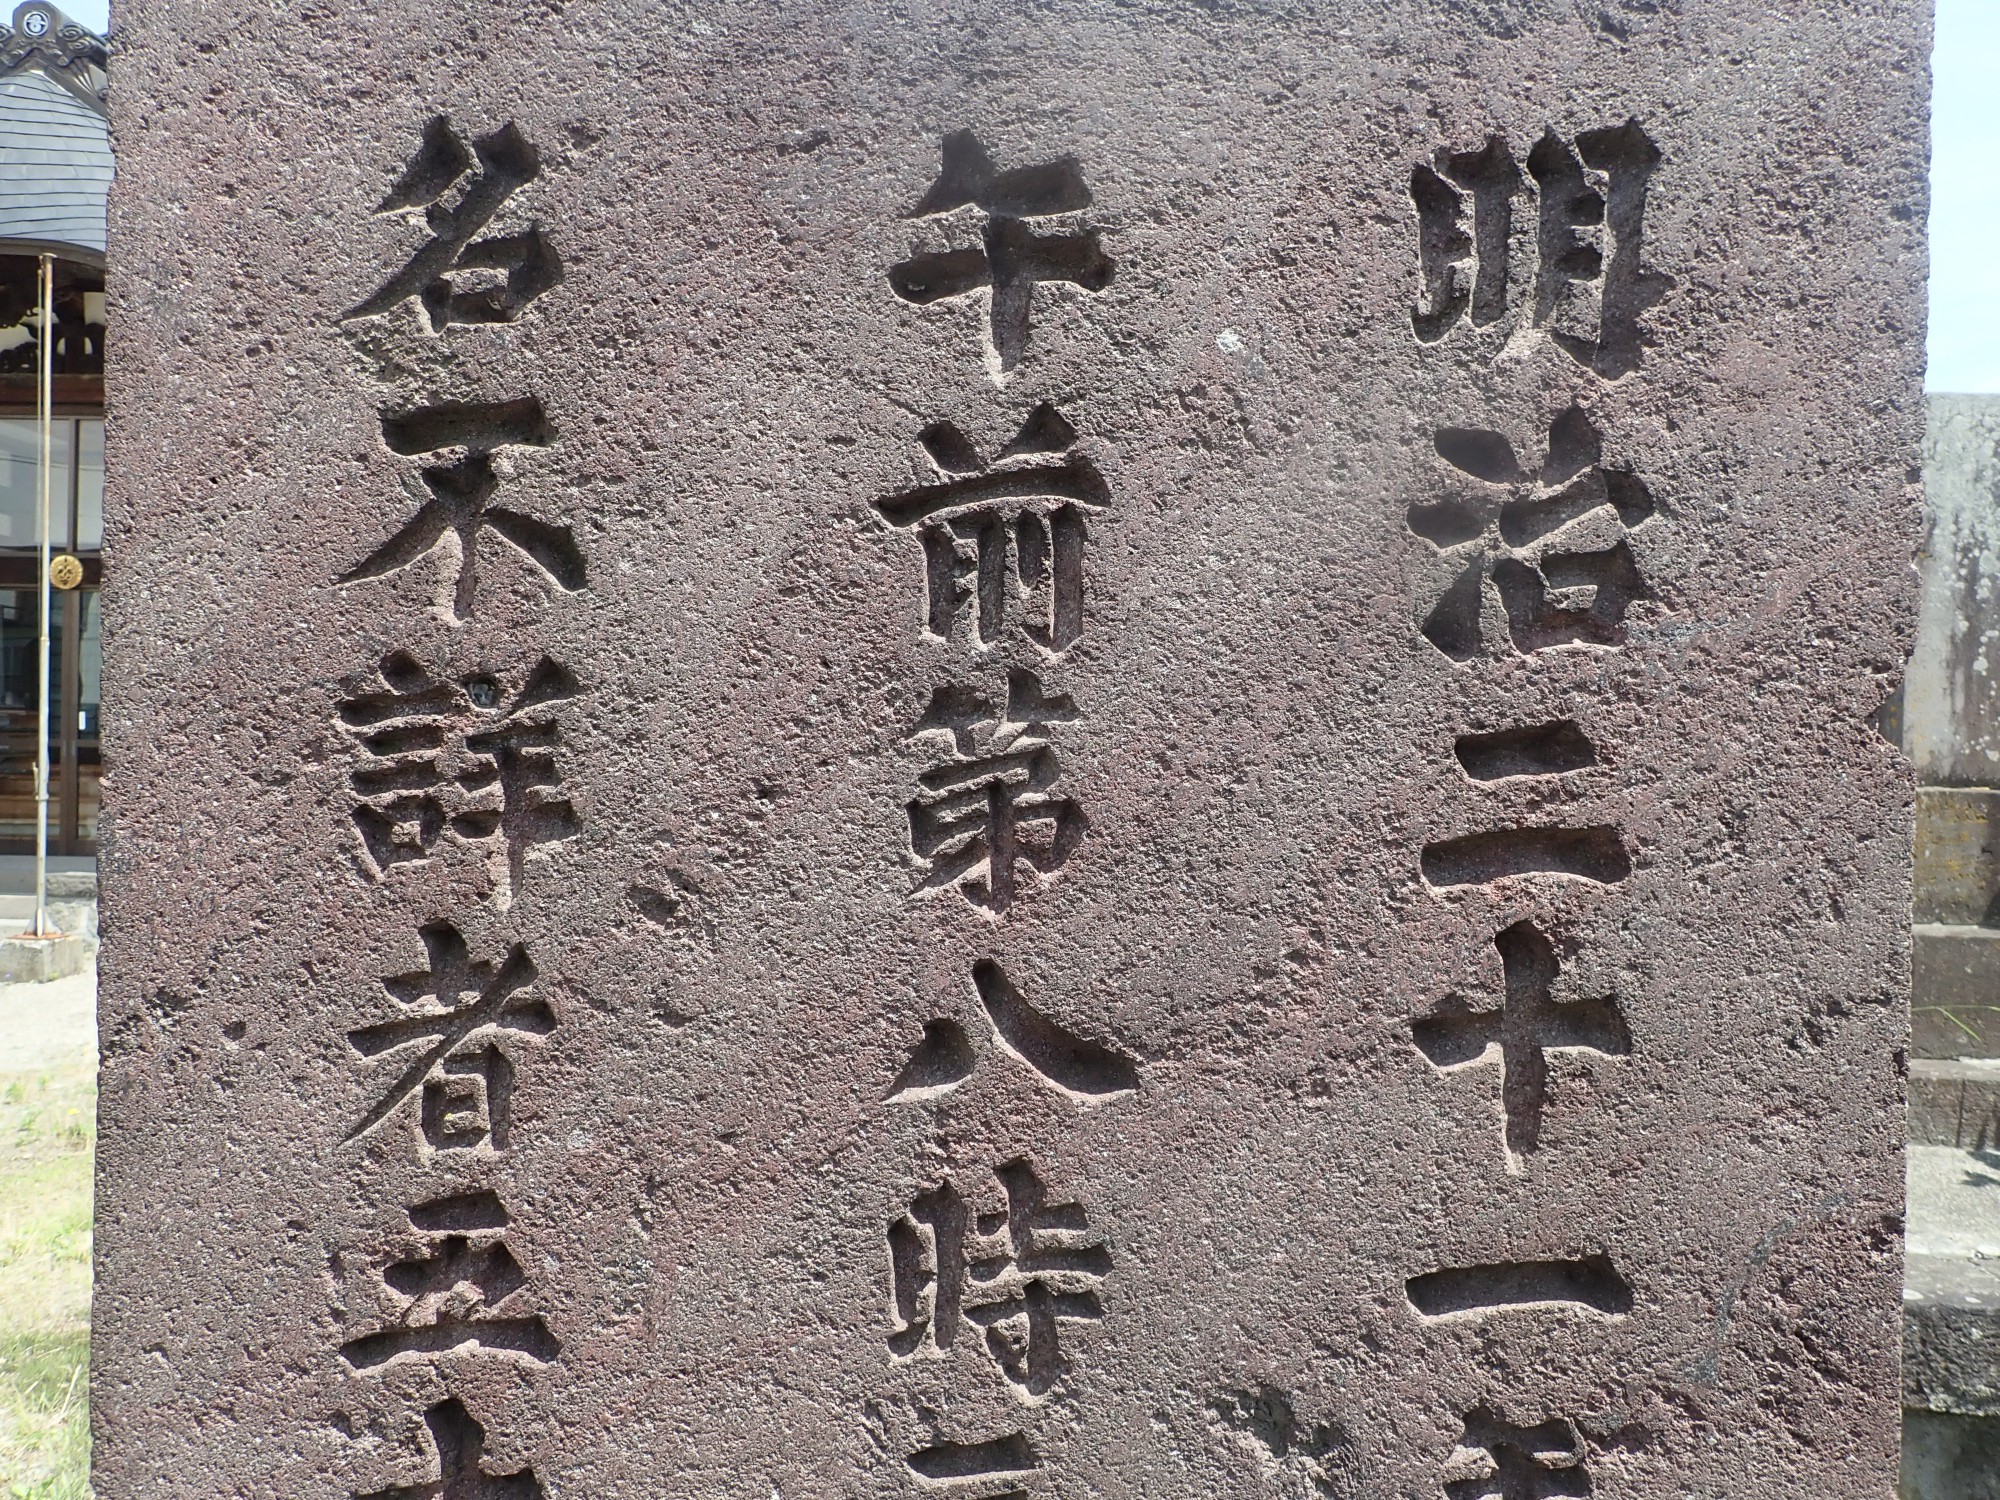 明治二十一年
午前第八時
名不詳者五十